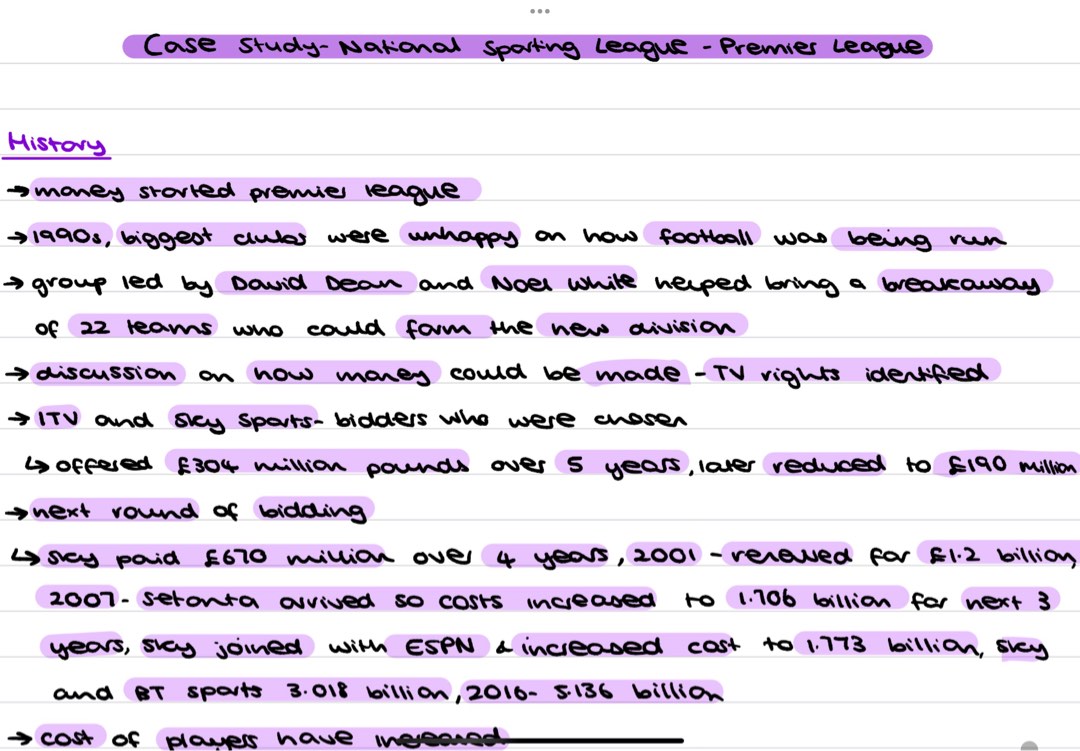 Case Study- National Sporting League - Premier League
History
→ money started premier league
→ 1990s, biggest clubs were unhappy on how football was being run
→ group led by David Dean and Noel White helped bring a breakaway
of 22 teams who could form the new division
→ discussion on how money could be made - TV rights identified
→ ITV and Sky Sports- bidders who were chosen
↳ offered £304 million pounds over 5 years, later reduced to £190 million
→ next round of bidding
↳ sky paid £670 million over 4 years, 2001 - renewed for £1.2 billion,
2007- Setanta arrived so costs increased to 1.706 billion for next 3
years, sky joined with ESPN & increased cost to 1.773 billion, sky
and BT sports 3.018 billion, 2016- 5.136 billion
→ cost of players have increased